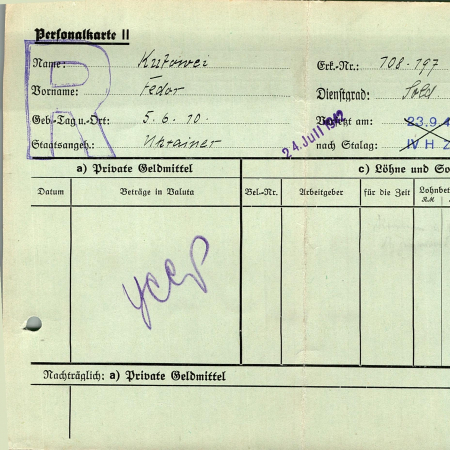 Personalkarte II
R
Name: Kutowei Erk.-Nr.: 108.197
Vorname: Fedor Dienstgrad: Sold.
Geb.-Tag u.-Ort: 5.6.10. Versetzt am: 23.9.4
24. Juli 1942
Staatsangeh.: Ukrainer nach Stalag: IV H Z
a) Private Geldmittel c) Löhne und So
Datum Beträge in Valuta Bel.-Nr. Arbeitgeber für die Zeit Lohnbet
RM
УССР
Nachträglich: a) Private Geldmittel